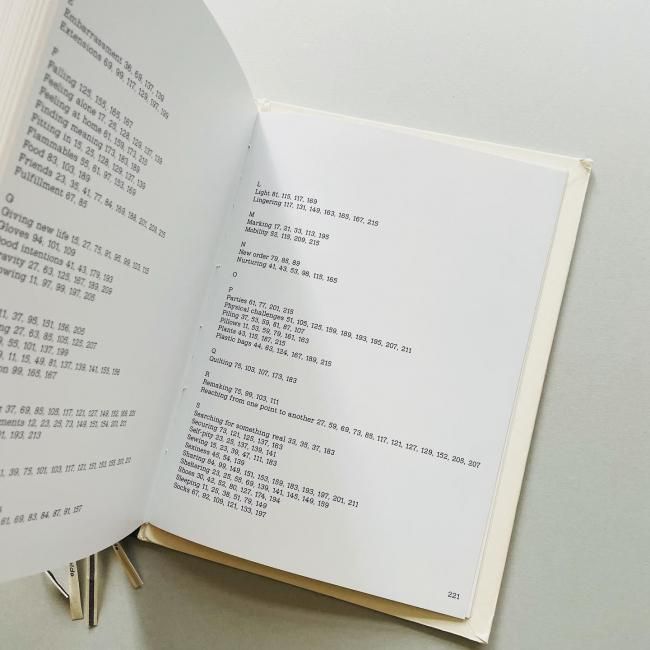 E
Embarrassment 36, 69, 137, 139
Extensions 69, 99, 117, 129, 197, 199
F
Falling 125, 155, 165, 167
Feeling alone 17, 25, 128, 129, 137, 139
Feeling at home 61, 159, 173, 215
Finding meaning 173, 183, 189
Fitting in 15, 25, 128, 129, 137, 139
Flammables 55, 61, 97, 153, 169
Food 83, 103, 189
Friends 23, 35, 41, 77, 84, 169, 188, 201, 209, 215
Fulfillment 67, 85
G
Giving new life 15, 27, 75, 91, 95, 99, 103, 115
Gloves 94, 101, 109
Good intentions 41, 43, 179, 193
Gravity 27, 63, 125, 167, 193, 209
Growing 11, 97, 99, 197, 205
11, 37, 95, 151, 156, 205
27, 63, 85, 105, 125, 207
55, 101, 137, 199
11, 15, 49, 81, 137, 139, 141, 155, 156
99, 165, 167
37, 69, 85, 105, 117, 121, 127, 149, 152, 168, 201
12, 23, 25, 73, 149, 151, 154, 201, 211
193, 213
39, 75, 101, 103, 117, 121, 151, 153, 155, 201, 217
61, 69, 83, 84, 87, 91, 157
L
Light 81, 115, 117, 169
Lingering 117, 131, 149, 163, 165, 167, 215
M
Marking 17, 21, 33, 113, 195
Mobility 53, 115, 209, 215
N
New order 79, 85, 89
Nurturing 41, 43, 53, 98, 115, 165
O
P
Parties 61, 77, 201, 215
Physical challenges 51, 105, 125, 159, 189, 193, 195, 207, 211
Piling 37, 53, 59, 61, 87, 107
Pillows 11, 53, 59, 79, 161, 163
Plants 43, 115, 167, 215
Plastic bags 44, 63, 124, 167, 189, 215
Q
Quilting 75, 103, 107, 173, 183
R
Remaking 75, 99, 103, 111
Reaching from one point to another 27, 59, 69, 73, 85, 117, 121, 127, 129, 152, 205, 207
S
Searching for something real 33, 35, 37, 183
Securing 73, 121, 125, 137, 163
Self-pity 23, 25, 137, 139, 141
Sewing 15, 23, 39, 47, 111, 183
Sexiness 45, 54, 139
Sharing 84, 99, 149, 151, 153, 159, 183, 193, 197, 201, 211
Sheltering 23, 25, 55, 69, 139, 141, 145, 149, 159
Shoes 30, 42, 52, 80, 127, 174, 194
Sleeping 11, 25, 38, 51, 79, 149
Socks 67, 92, 109, 121, 133, 197
221